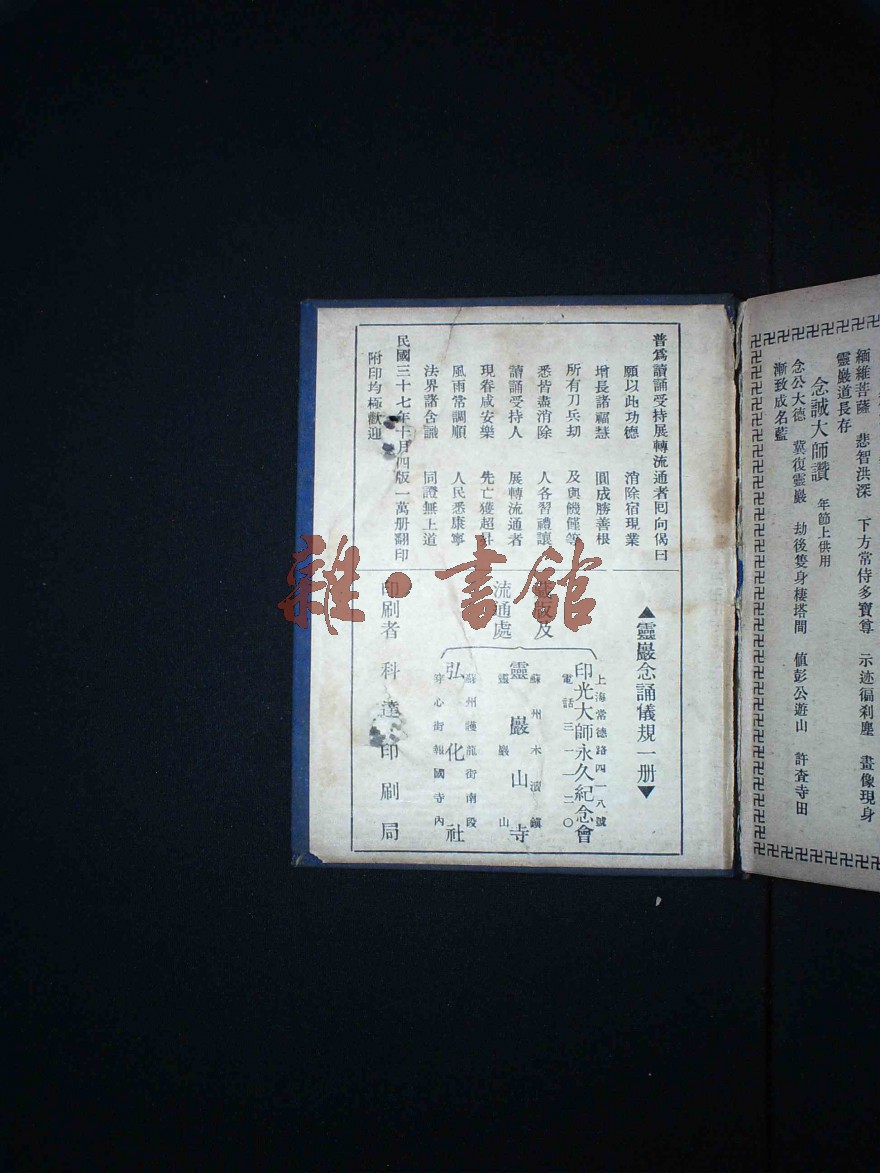 緬維菩薩 悲智洪深 下方常侍多寶尊 示迹徧刹塵 畫像現身
靈巖道長存
念誠大師讚 年節上供用
念公大德 冀復靈巖 劫後隻身棲塔間 値彭公遊山 許査寺田
漸致成名藍
普爲讀誦受持展轉流通者囘向偈曰
願以此功德 消除宿現業
增長諸福慧 圓成勝善根
所有刀兵刼 及與饑饉等
悉皆盡消除 人各習禮讓
讀誦受持人 展轉流通者
現眷咸安樂 先亡獲超昇
風雨常調順 人民悉康寧
法界諸含識 同證無上道
民國三十七年十月四版一萬册翻印
附印均極歡迎
▲靈巖念誦儀規一册▼
版及
流通處
上海常德路四一八號
印光大師永久紀念會
電話三一一二〇
蘇州木瀆鎮
靈巖山寺
靈巖山
蘇州護龍街南段
弘化社
穿心街報國寺內
印刷者 科達印刷局
雜·書館